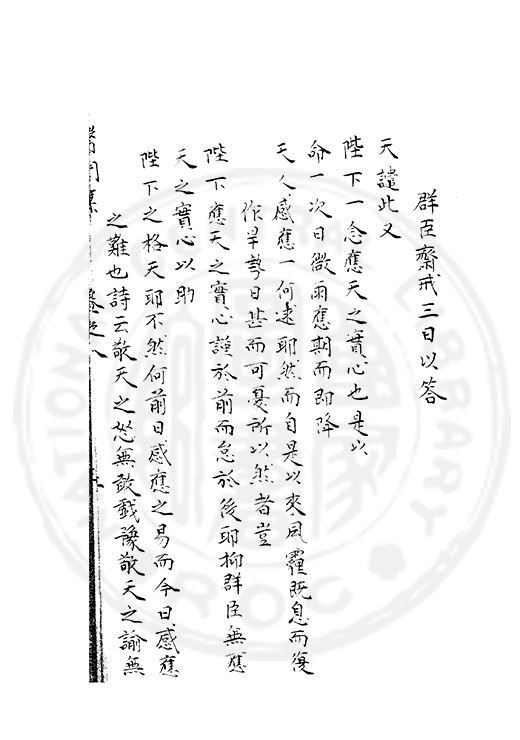 群臣齋戒三日以答
天譴此又
陛下一念應天之實心也是以
命一次日微雨應期而即降
天人感應一何速耶然而自是以來風霾既息而復
作旱勢日甚而可憂所以然者豈
陛下應天之實心謹於前而怠於後耶抑群臣無應
天之實心以助
陛下之格天耶不然何前日感應之易而今日感應
之難也詩云敬天之怒無敢戲豫敬天之渝無